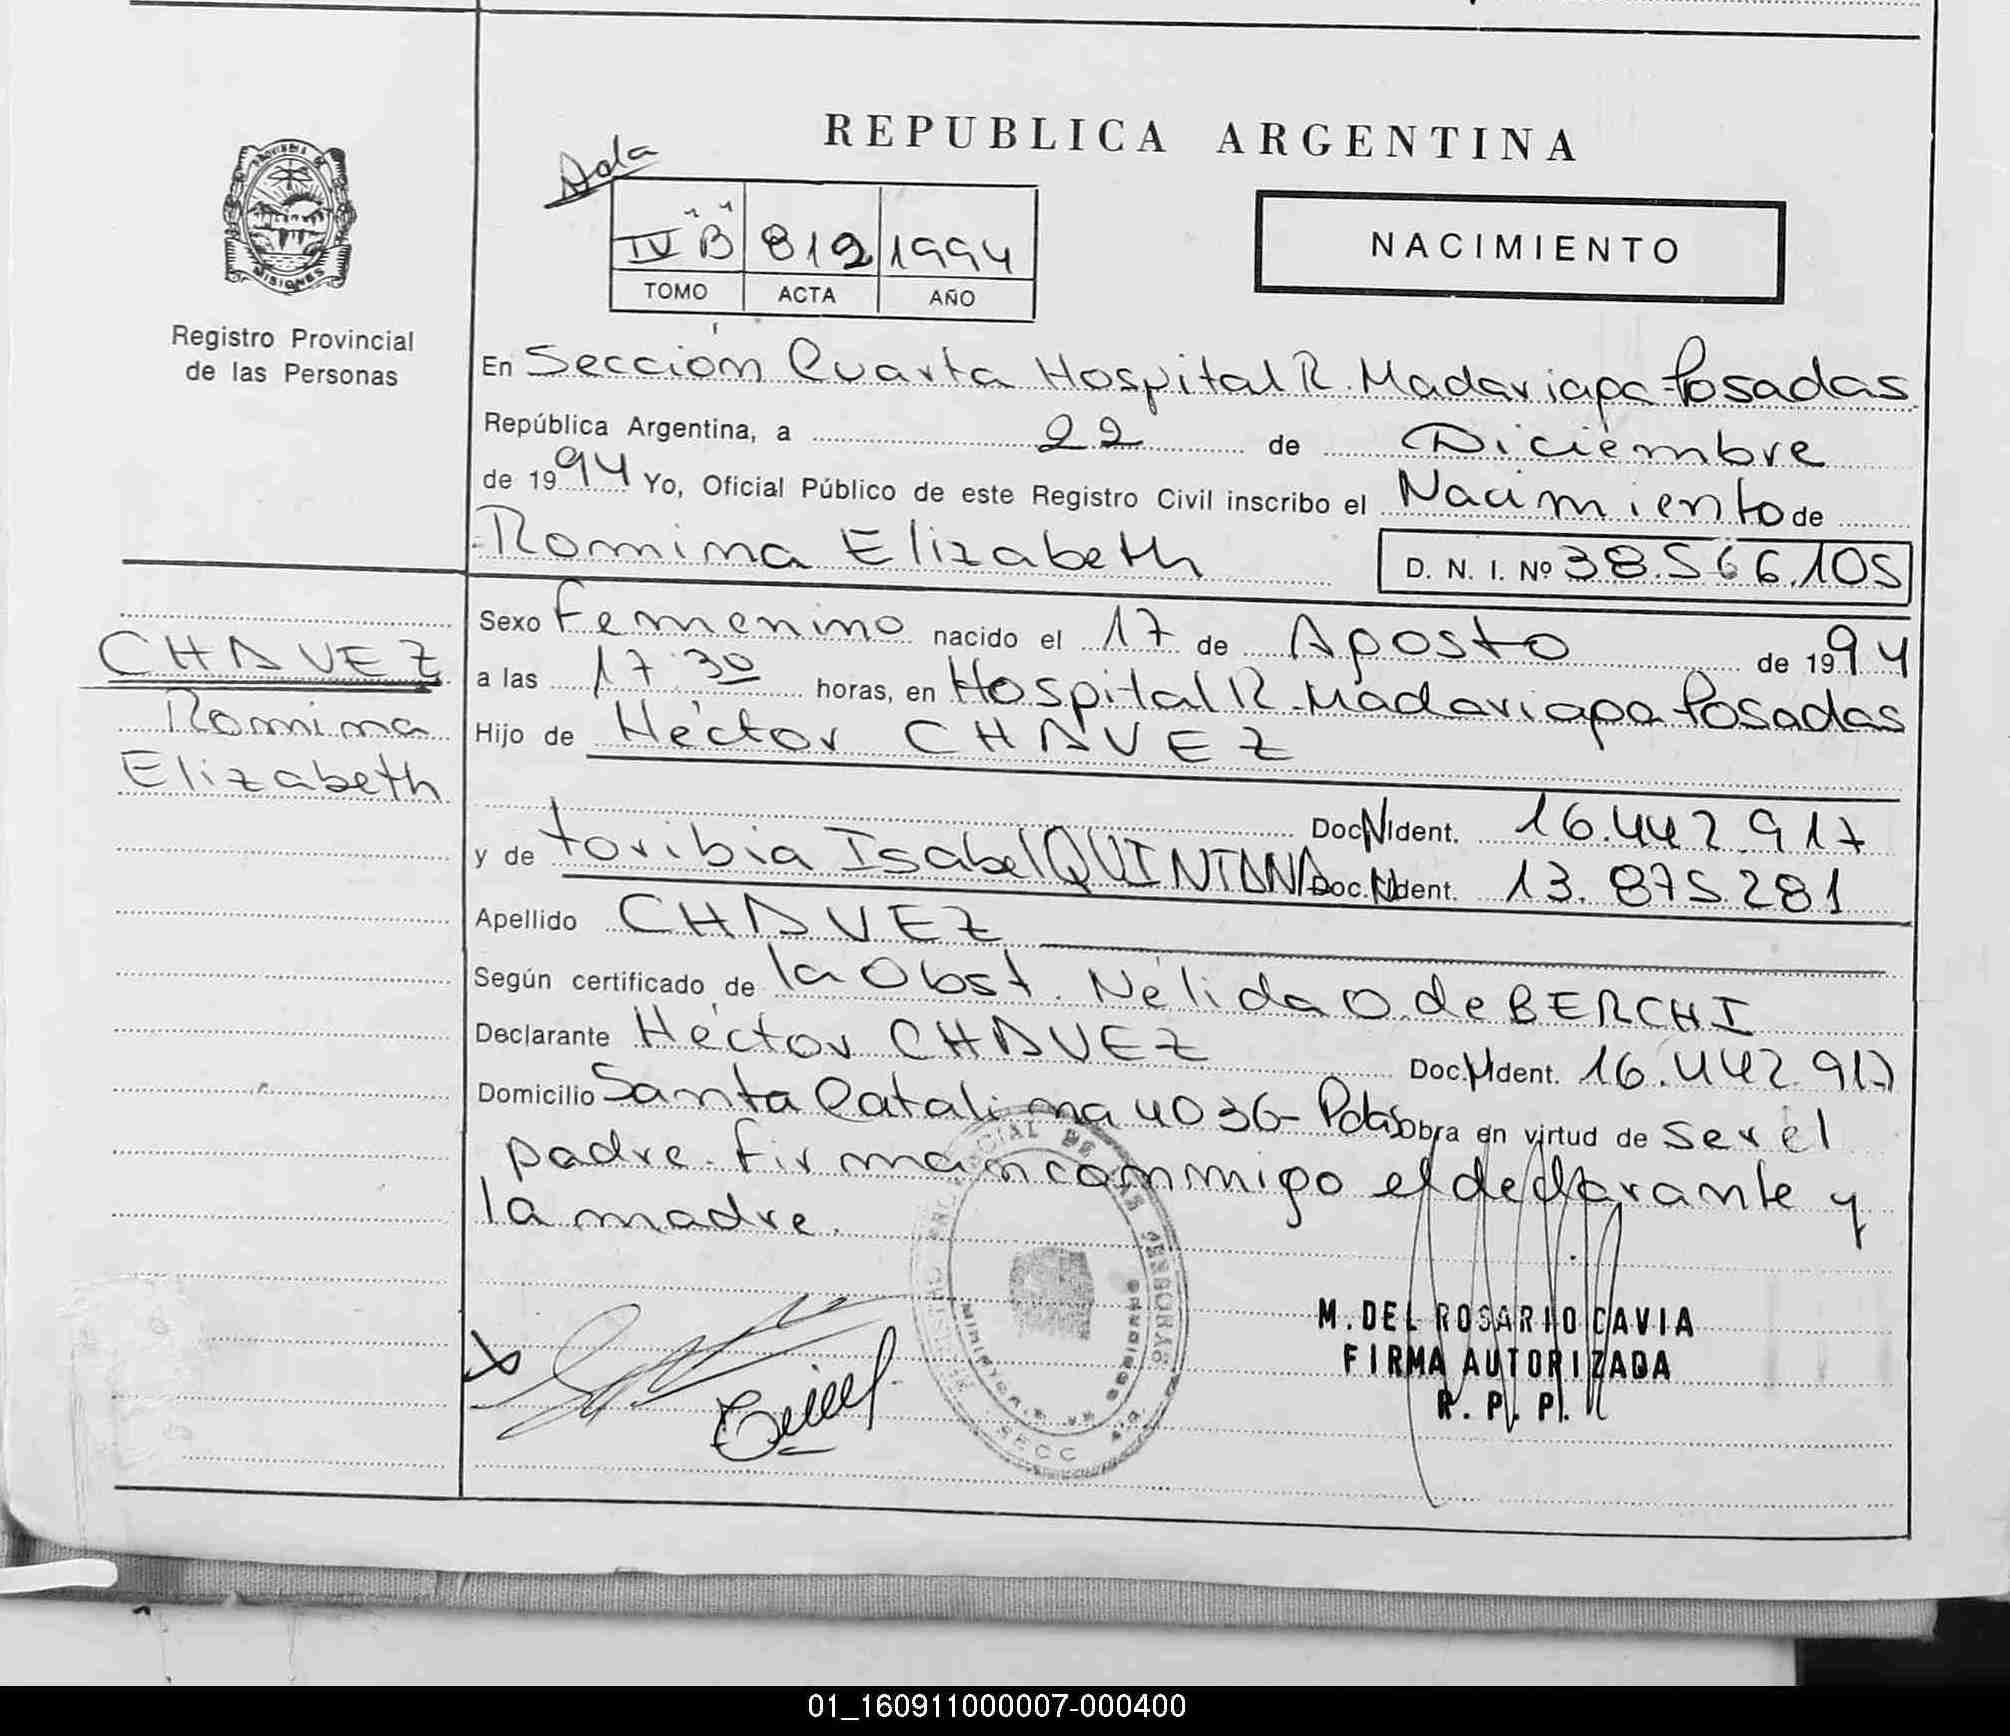 REPUBLICA ARGENTINA
IV "B" 812 1994
TOMO ACTA AÑO
NACIMIENTO
PROVINCIA DE
MISIONES
Registro Provincial
de las Personas
En Sección Cuarta Hospital R. Madariaga-Posadas
República Argentina, a 22 de Diciembre
de 1994 Yo, Oficial Público de este Registro Civil inscribo el Nacimiento de
Romina Elizabeth D. N. I. Nº 38.566.105
CHAVEZ
Romina
Elizabeth
Sexo Femenino nacido el 17 de Agosto de 1994
a las 17:30 horas, en Hospital R. Madariaga Posadas
Hijo de Héctor CHAVEZ
Doc. N Ident. 16.442.917
y de toribia Isabel QUINTANA Doc. N Ident. 13.875.281
Apellido CHAVEZ
Según certificado de la Obst. Nélida O. de BERCHI
Declarante Héctor CHAVEZ Doc. N Ident. 16.442.917
Domicilio Santa Catalina 4036- Pdas Obra en virtud de ser el
padre. firman conmigo el declarante y
la madre.
M. DEL ROSARIO CAVIA
FIRMA AUTORIZADA
R. P. P.
01_160911000007-000400